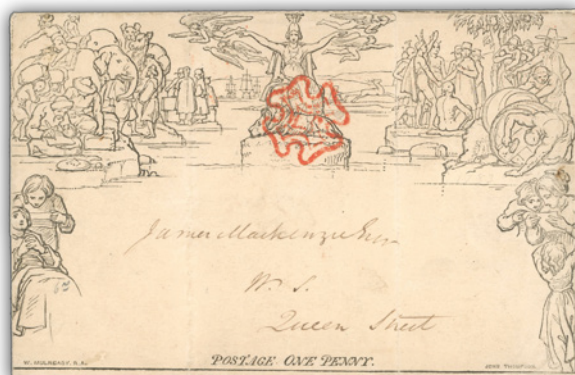 James Mackenzie Esqr
W. S.
Queen Street
W. MULREADY. R.A.
POSTAGE ONE PENNY.
JOHN THOMPSON